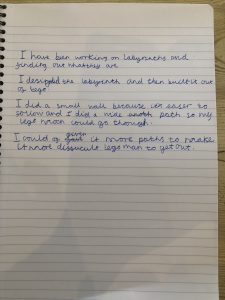 I have ben working on labyrinths and
finding out what they are
I desighed the labyrinth and then built it out
of lego
I did a small wall because it's easer to
follow and I did a wide path so my
lego man could go though.
I could of given it more paths to make
it more dissucult lego man to get out.